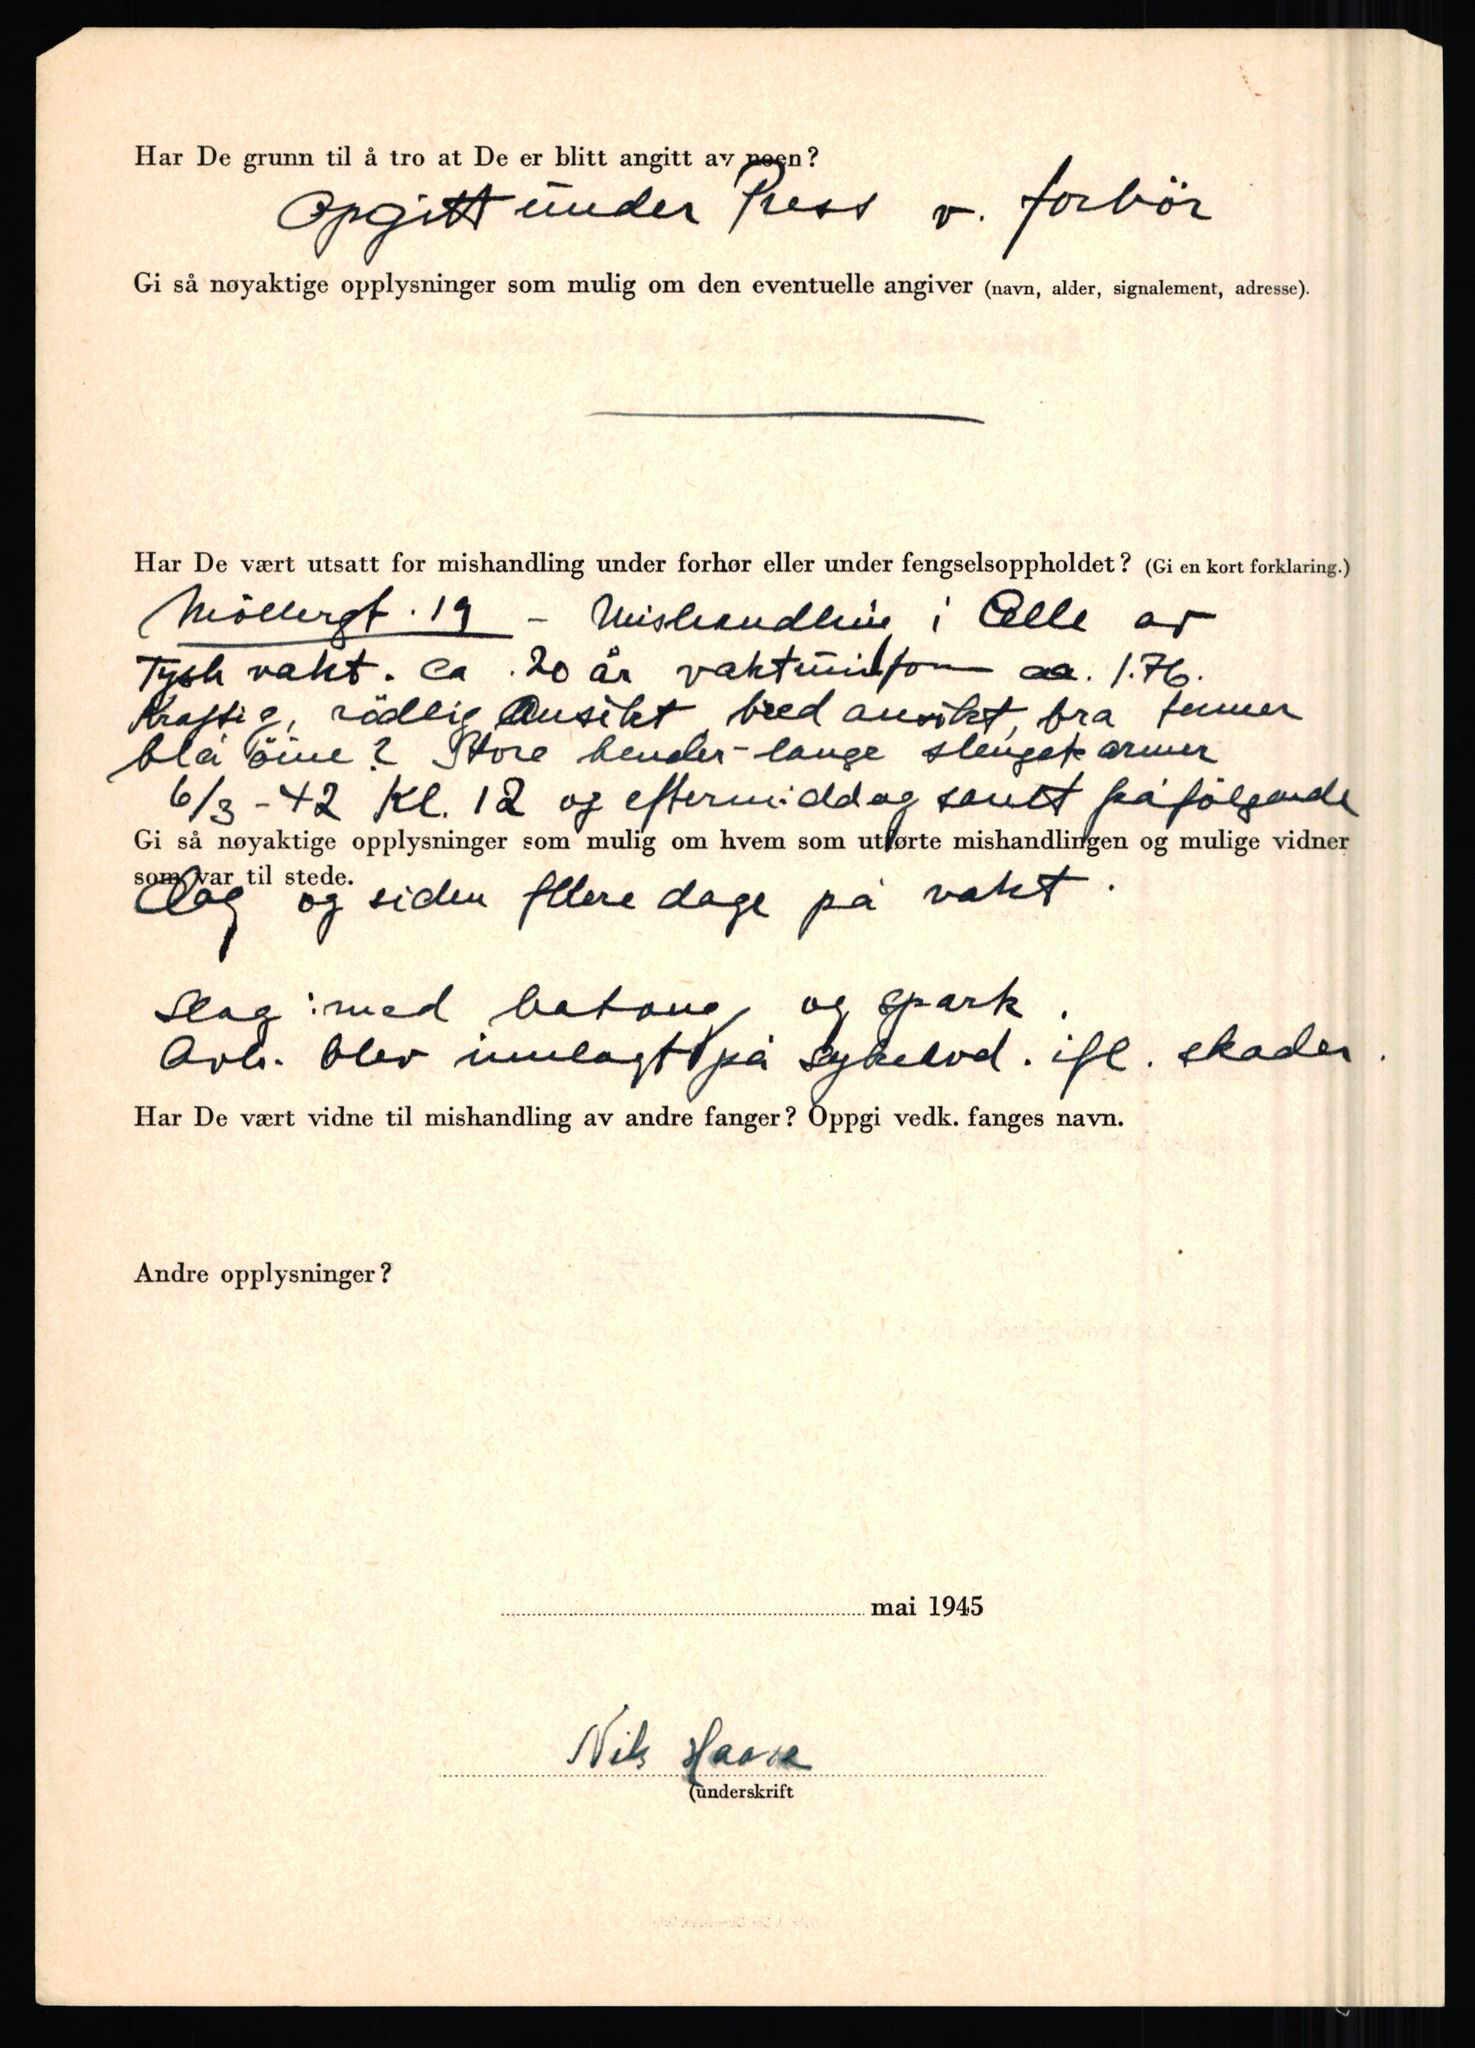 Har De grunn til å tro at De er blitt angitt av noen?
Opgitt under Press v. forhör
Gi så nøyaktige opplysninger som mulig om den eventuelle angiver (navn, alder, signalement, adresse).
Har De vært utsatt for mishandling under forhør eller under fengselsoppholdet? (Gi en kort forklaring.)
Möllergt. 19 - Mishandling i Celle av
Tysk vakt. ca. 20 år vaktuniform ca. 1.76.
Kraftig, rödlig Ansikt, bred ansikt, bra tenner
blå öine? Store hender - lange slenget armer
6/3 - 42 Kl. 12 og eftermiddag samt påfölgende
Gi så nøyaktige opplysninger som mulig om hvem som utførte mishandlingen og mulige vidner
som var til stede.
Dag og siden flere dage på vakt.
Slag: med batong og spark.
Arb. blev innlagt på sykeavd. ifl. skader.
Har De vært vidne til mishandling av andre fanger? Oppgi vedk. fanges navn.
Andre opplysninger?
mai 1945
Nils Haase
(underskrift